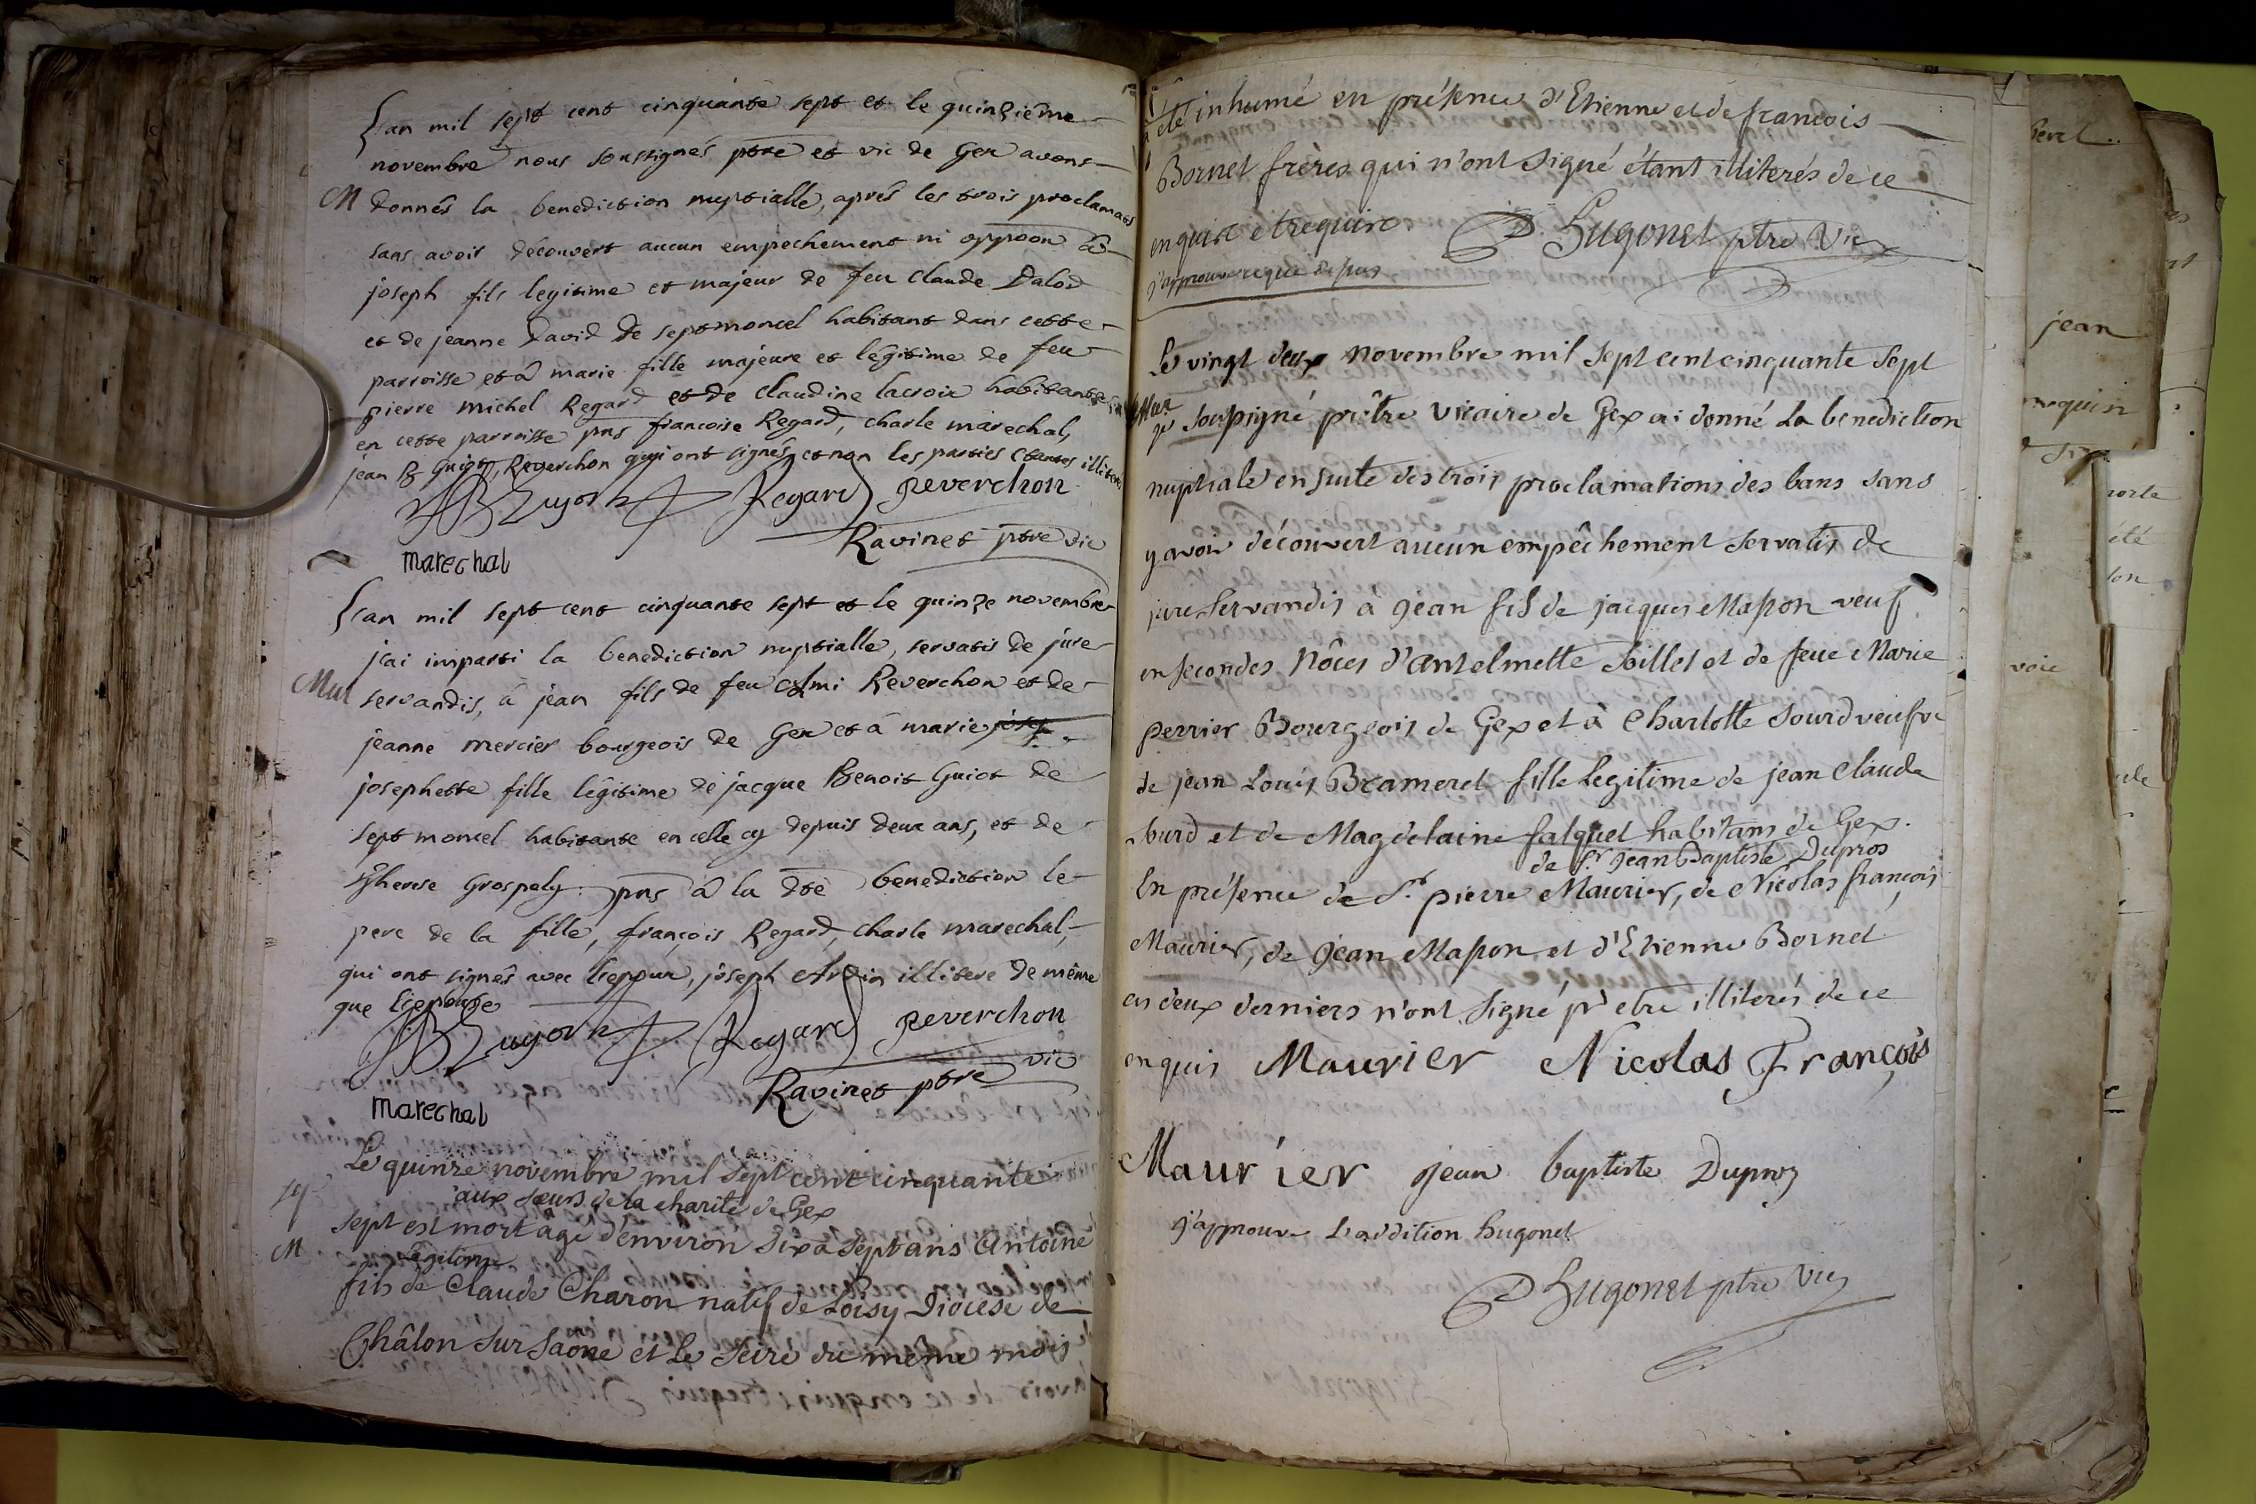 L'an mil sept cent cinquante sept et le quinzième
novembre nous soussignés ptre et vic de Gex avons
M donnés la benediction nuptialle, aprés les trois proclamaons
sans avoir découvert aucun empechement ni oppoon à
joseph fils legitime et majeur de feu Claude Dalod
et de jeanne David de septmoncel habitant dans cette
parroisse et à marie fille majeure et légitime de feu
pierre michel Regard et de Claudine lacroix habitante
en cette parroisse pns francoise Regard, charle marechal,
jean B. guiot, Reverchon qui ont signés et non les parties étantes illiterés
Guyot Regard reverchon
Ravinet ptre vic
marechal
L'an mil sept cent cinquante sept et le quinze novembre
j'ai imparti la benediction nuptialle, servatis de jure
servandis, à jean fils de feu Aimi Reverchon et de
jeanne mercier bourgeois de Gex et à marie
josephette fille légitime de jacque Benoit Guiot de
sept moncel habitante en celle cy depuis deux ans, et de
therese Grospely pns à la dte benediction le
pere de la fille, françois Regard, charle marechal,
qui ont signés avec l'epoux, joseph illitere de même
que l'epouse
Guyot Regard reverchon
Ravinet ptre vic
marechal
Le quinze novembre mil sept cent cinquante
aux sœurs de la charité de Gex
sept est mort agé d'environ six a sept ans Antoine
M legitime
fils de Claude Charon natif de Loisy Diocese de
Châlon sur Saone et le seize du même mois
été inhumé en présence d'Etienne et de francois
Bornet frères qui n'ont signé étant illiterés de ce
enquis et requis D. Hugonet ptre Vic
j'approuve
Le vingt deux novembre mil sept cent cinquante sept
je soussigné prêtre vicaire de Gex ai donné la benediction
nuptiale ensuite des trois proclamations des bans sans
y avoir découvert aucun empêchement servatis de
jure servandis à jean fils de jacques Masson veuf
en secondes nôces d'Antelmette Soillet et de feüe Marie
perrier Bourgeois de Gex et à Charlotte Sourd veufve
de jean Louis Brameret fille legitime de jean claude
sourd et de Magdelaine falquet habitans de Gex.
de Sr jean Baptiste Dupros
En présence de Sr. pierre Maurier, de Nicolas françois
Maurier, de jean Masson et d'Etienne Bornet
ces deux derniers n'ont signé pr etre illiterés de ce
enquis Maurier Nicolas François
Maurier jean baptiste Duproz
j'approuve l'addition hugonet
D Hugonet ptre Vic